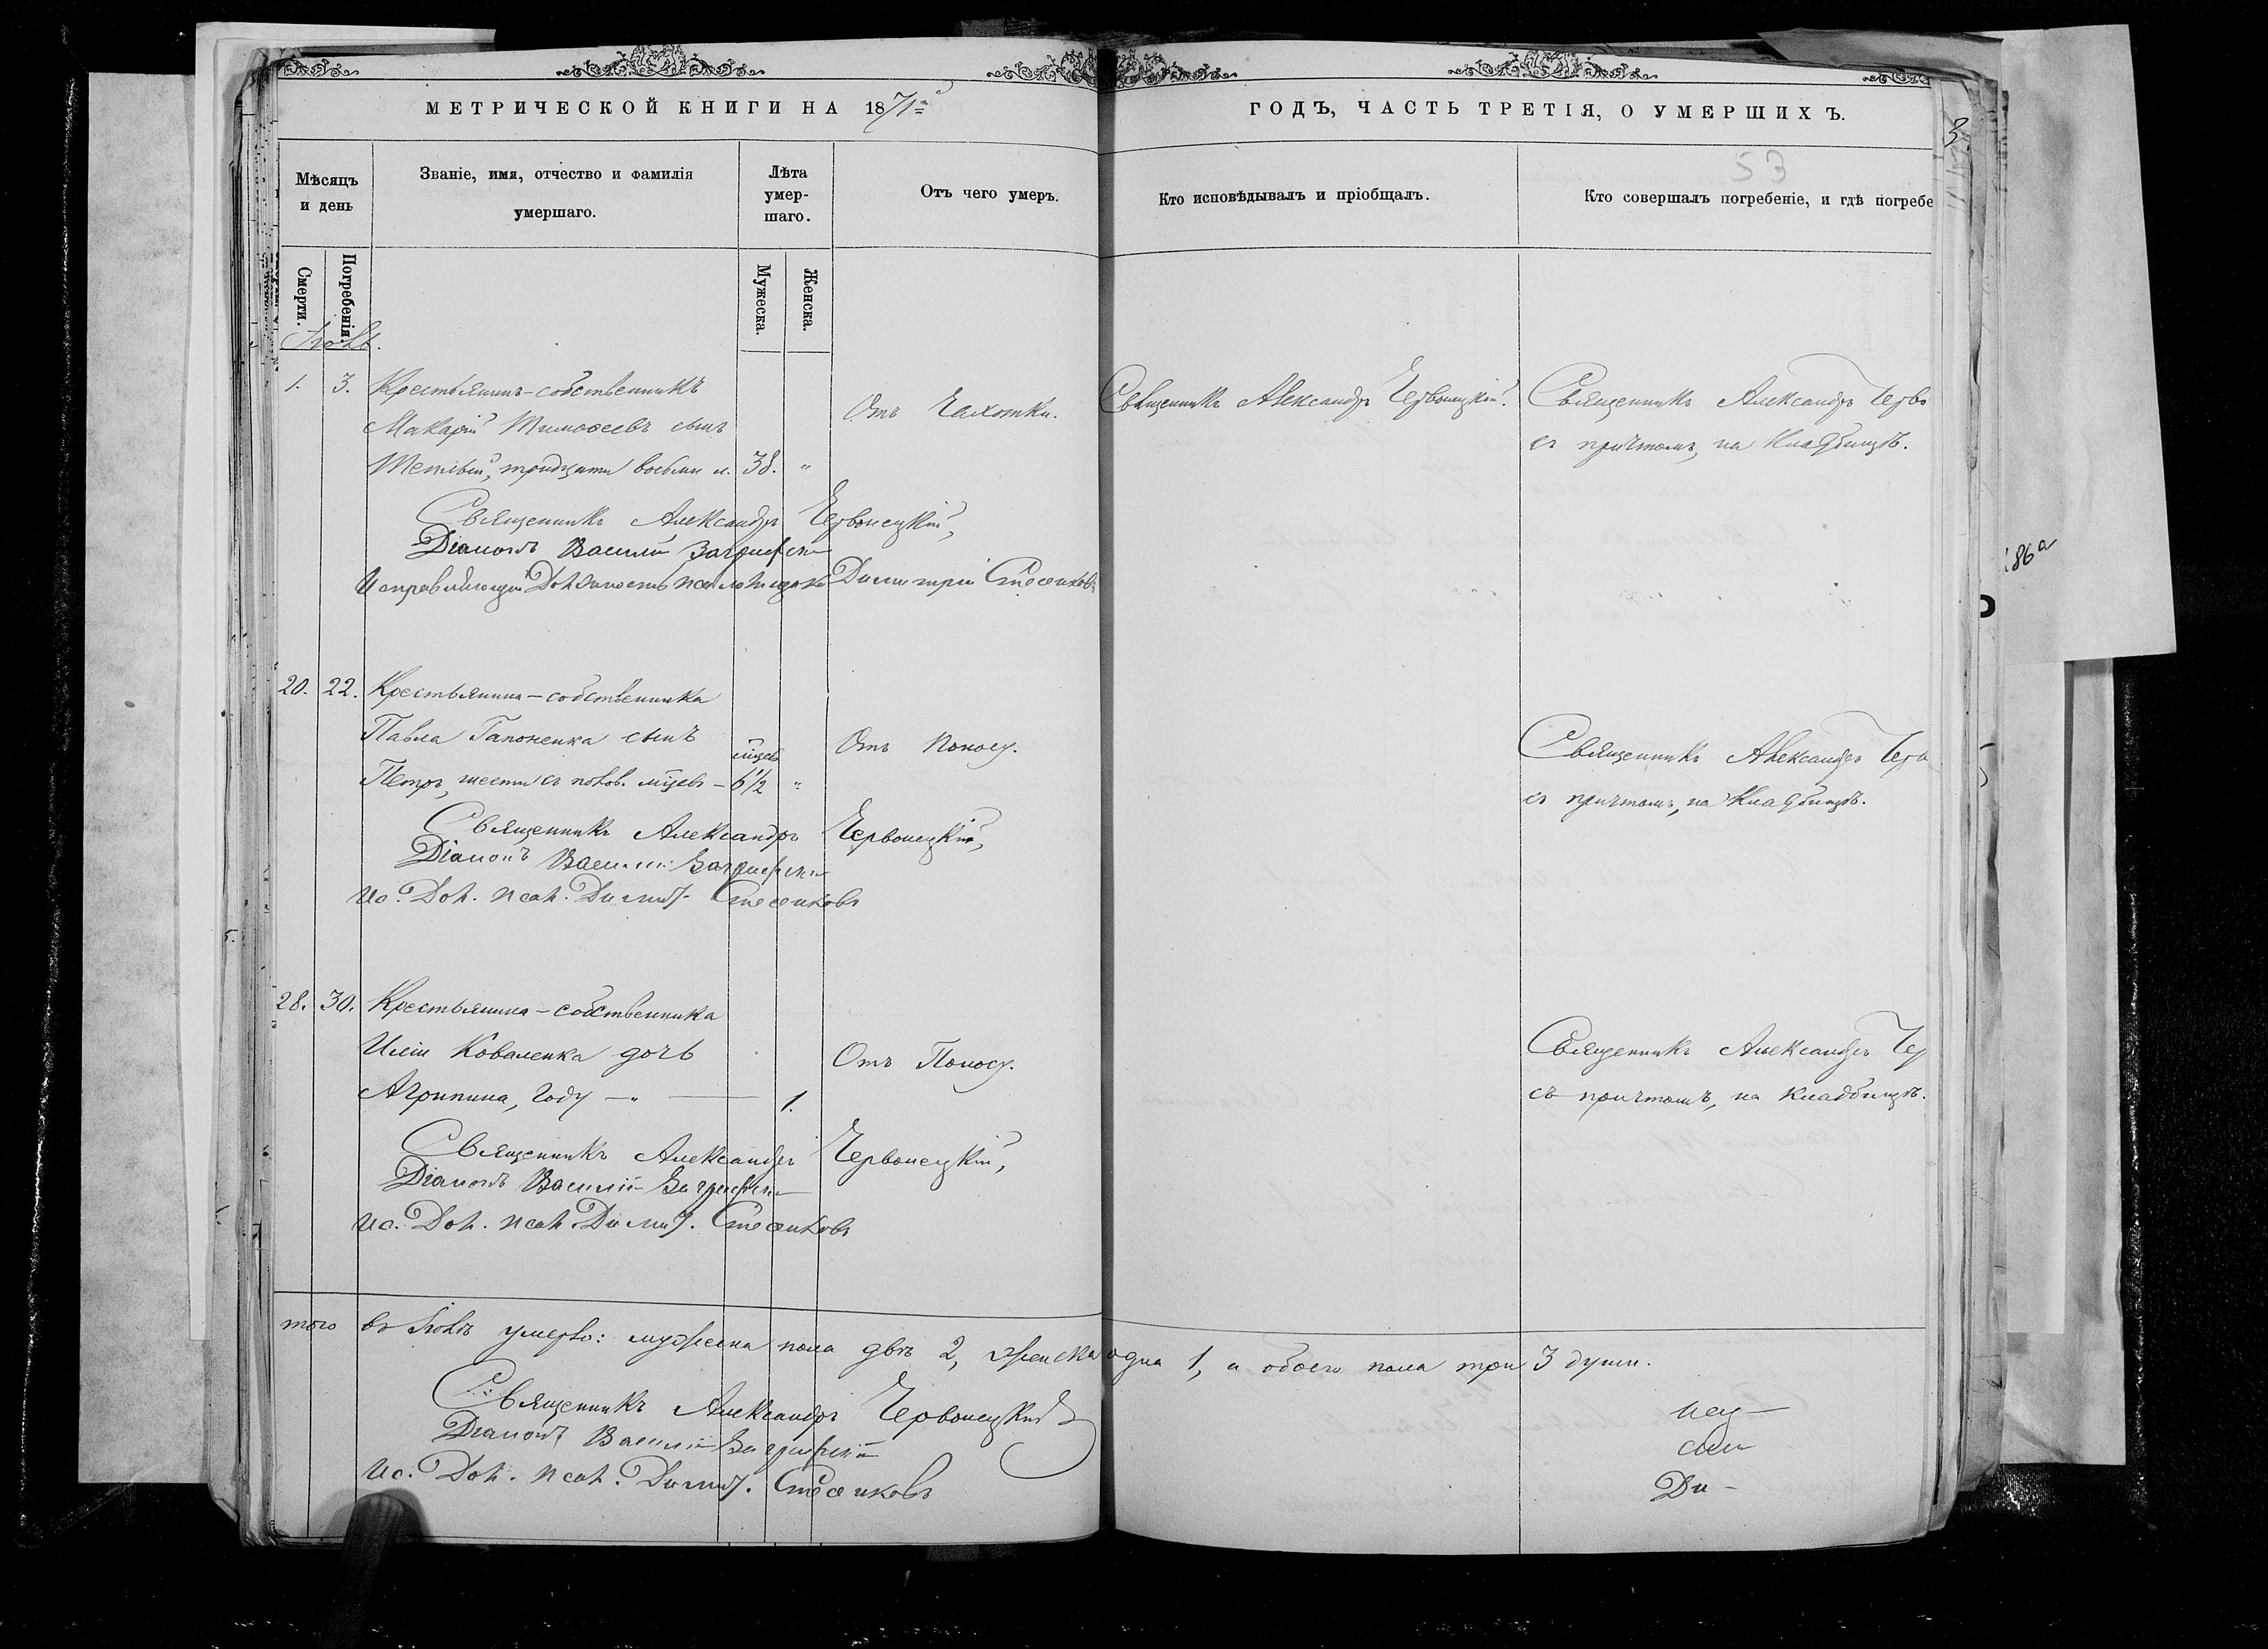 МЕТРИЧЕСКОЙ КНИГИ НА 1871й
ГОДЪ, ЧАСТЬ ТРЕТІЯ, О УМЕРШИХЪ.
3
53
Мѣсяцъ и день
Званіе, имя, отчество и фамилія умершаго.
Лѣта умер-шаго.
Отъ чего умеръ.
Кто исповѣдывалъ и пріобщалъ.
Кто совершалъ погребеніе, и гдѣ погребе
Смерти.
Погребенія.
Мужеска.
Женска.
Іюль.
1. 3. Крестьянинъ-собственникъ
Макарій Тимофеевъ сынъ
тридцати восьми л. 38. "
Отъ Чахотки.
Священникъ Александръ Червонецкій.
Священникъ Александръ Черво
съ причтомъ, на кладбищѣ.
Священникъ Александръ Червонецкій,
Діаконъ Василій
Исправляющій Должность псаломщика Димитрій
186а
20. 22. Крестьянина-собственника
Павла Гапоненка сынъ
Петръ, шести съ полов. мѣсяцъ - 6 1/2 "
мѣсяц
Отъ Поносу.
Священникъ Александръ Черв
съ причтомъ, на Кладбищѣ.
Священникъ Александръ Червонецкій,
Діаконъ Василій
Ис. Дол. псал. Димит.
28. 30. Крестьянина-собственника
Иліи Коваленка дочь
Агрипина, году — " — 1.
Отъ Поносу.
Священникъ Александръ Чер
съ причтомъ, на кладбищѣ.
Священникъ Александръ Червонецкій,
Діаконъ Василій
Ис. Дол. псал. Димит.
того въ Іюлѣ умерло: мужеска пола двѣ 2, женска одна 1, а обоего пола три 3 души.
Священникъ Александръ Червонецкій
Діаконъ Василій
Ис. Дол. псал. Димит.